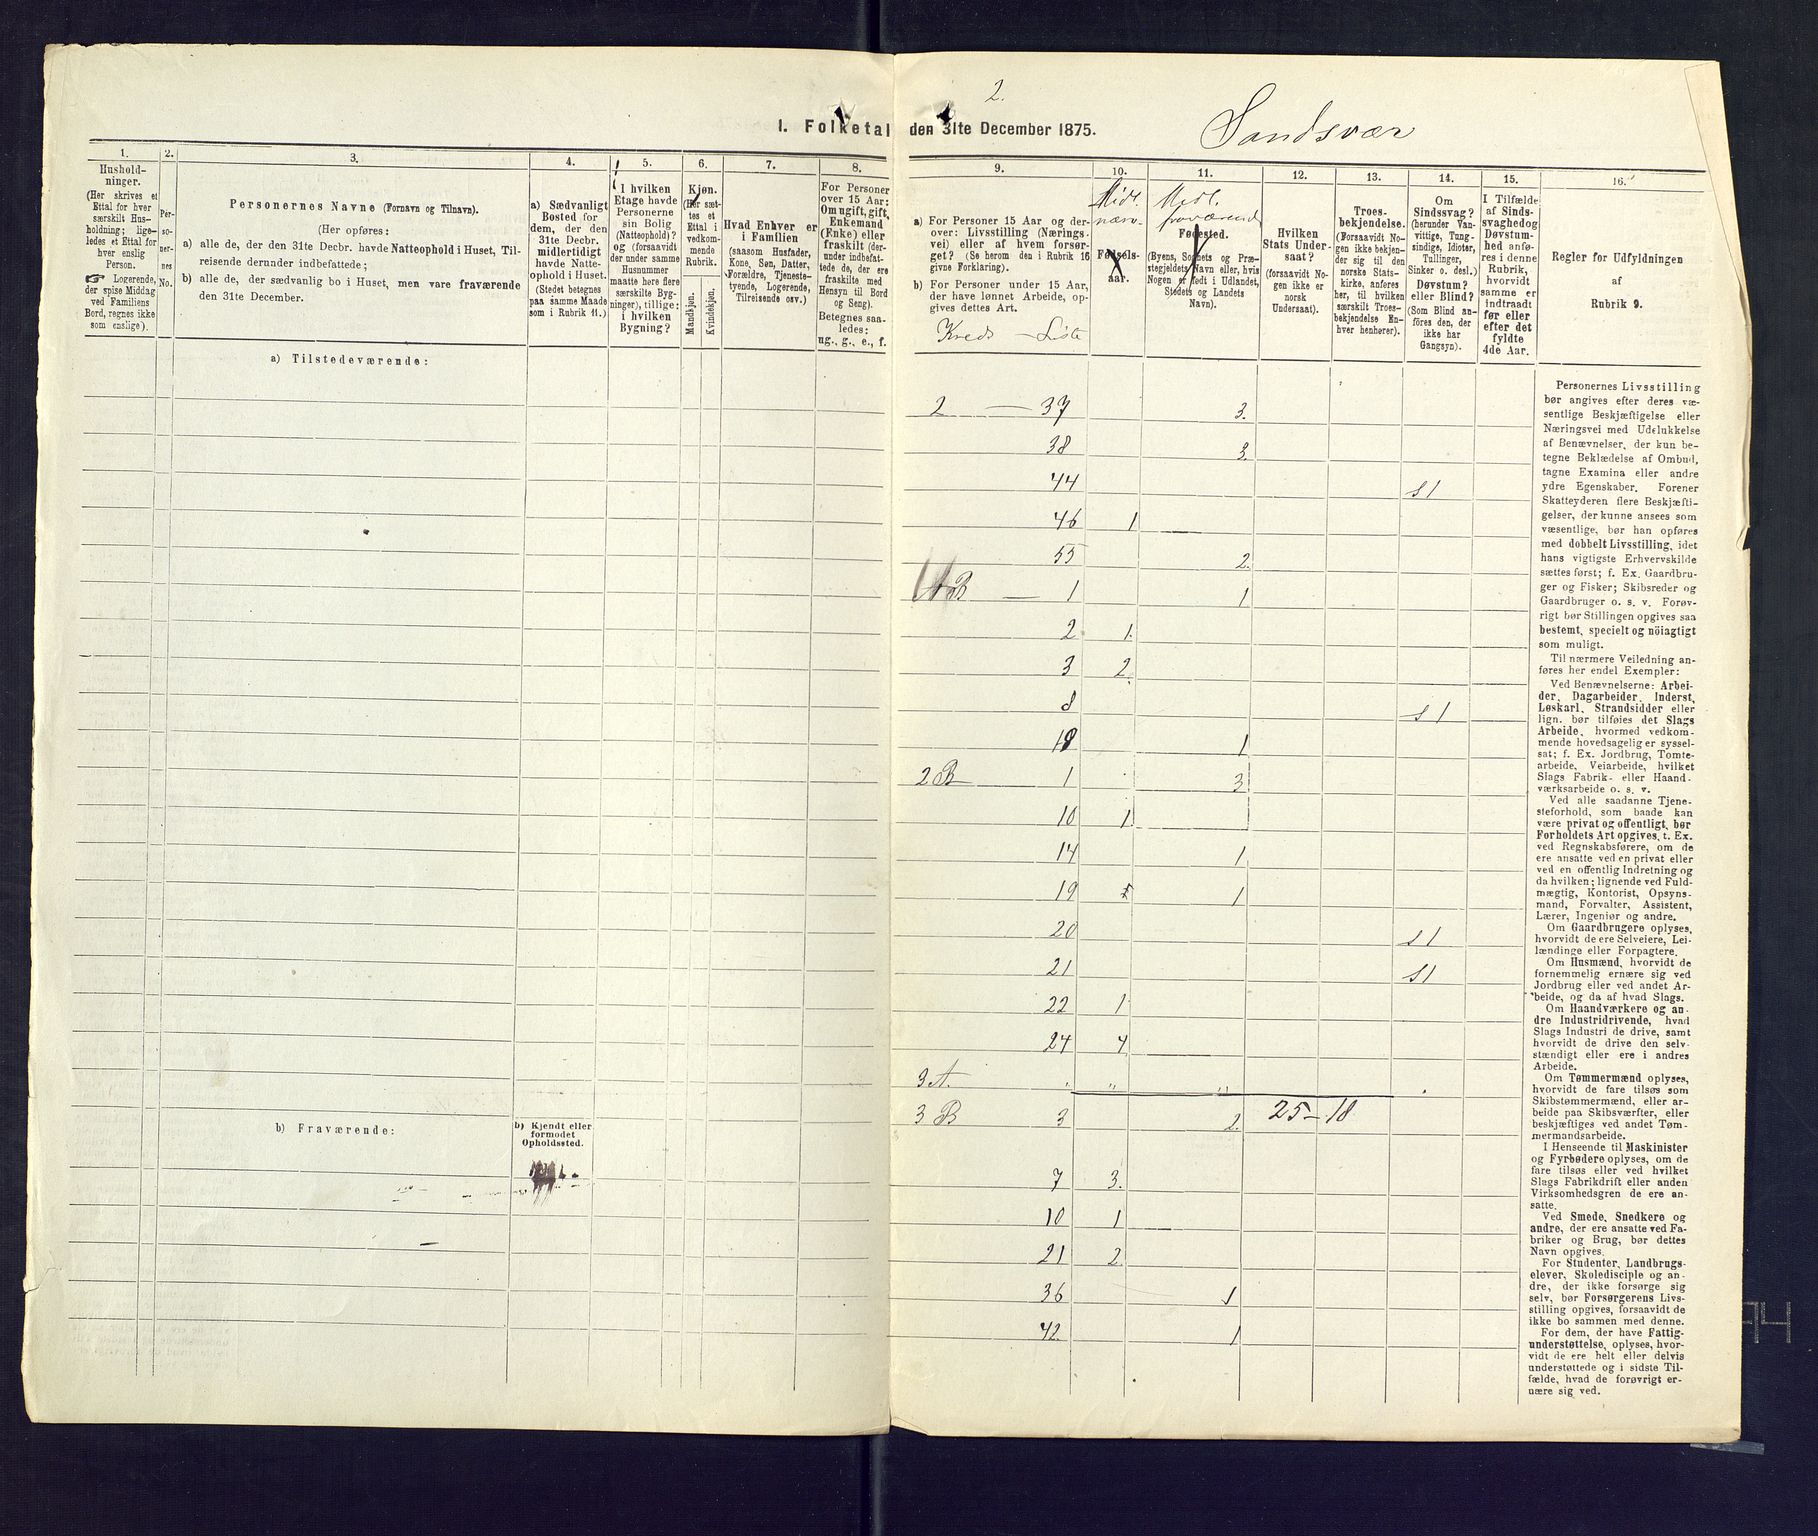 2.
I. Folketal den 31te December 1875.
Sandsvær
1.
Hushold-
ninger.
(Her skrives et
Ettal for hver
særskilt Hus-
holdning; lige-
ledes et Ettal for
hver enslig
Person.
Logerende,
der spise Middag
ved Familiens
Bord, regnes ikke
som enslige).
2.
Per-
so-
ner-
nes
No.
3.
Personernes Navne (Fornavn og Tilnavn).
(Her opføres:
a) alle de, der den 31te Decbr. havde Natteophold i Huset, Til-
reisende derunder indbefattede;
b) alle de, der sædvanlig bo i Huset, men vare fraværende
den 31te December.
4.
a) Sædvanligt
Bosted for
dem, der den
31te Decbr.
midlertidigt
havde Natte-
ophold i Huset.
(Stedet betegnes
paa samme Maade
som i Rubrik 11.)
5.
I hvilken
Etage havde
Personerne
sin Bolig
(Natteophold)?
og (forsaavidt
der under samme
Husnummer
maatte høre flere
særskilte Byg-
ninger), tillige:
i hvilken
Bygning?
6.
Kjøn.
(Her sæt-
tes et
Ettal i
vedkom-
mende
Rubrik.
Mandkjøn.
Kvindekjøn.
7.
Hvad Enhver er
i Familien
(saasom Husfader,
Kone, Søn, Datter,
Forældre, Tjeneste-
tyende, Logerende,
Tilreisende osv.)
8.
For Personer
over 15 Aar:
Om ugift, gift,
Enkemand
(Enke) eller
fraskilt (der-
under indbefat-
tede de, der ere
fraskilte med
Hensyn til Bord
og Seng).
Betegnes saa-
ledes:
ug., g., e., f.
9.
a) For Personer 15 Aar og der-
over: Livsstilling (Nærings-
vei) eller af hvem forsør-
get? (Se herom den i Rubrik 16
givne Forklaring).
b) For Personer under 15 Aar,
der have lønnet Arbeide, op-
gives dettes Art.
Kreds — Liste
10.
Midl.
nærv.
Fødsels-
aar.
11.
Midl.
fraværend
Fødested.
(Byens, Sognets og Præ-
stegjeldets Navn eller, hvis
Nogen er født i Udlandet,
Stedets og Landets
Navn).
12.
Hvilken
Stats Under-
saat?
(forsaavidt No-
gen ikke er
norsk
Undersaat).
13.
Troes-
bekjendelse.
(Forsaavidt No-
gen ikke bekjen-
der sig til den
norske Stats-
kirke, anføres
her, til hvilken
særskilt Troes-
bekjendelse En-
hver henhører).
14.
Om
Sindssvag?
(herunder Van-
vittige, Tung-
sindige, Idioter,
Tullinger,
Sinker o. desl.)
Døvstum?
eller Blind?
(Som Blind an-
føres den, der
ikke har
Gangsyn).
15.
I Tilfælde
af Sinds-
svaghedog
Døvstum-
hed anfø-
res i denne
Rubrik,
hvorvidt
samme er
indtraadt
før eller
efter det
fyldte
4de Aar.
16.
Regler for Udfyldningen
af
Rubrik 9.
a) Tilstedeværende:
2 — 37 3.
38 3.
44 s1
46 1
55 2.
B — 1 1
2 1.
3 2.
8 s1
18 1
2 B 1 3
10 1.
14 1
19 1
20 s1
21 s1
22 1
24 4
3 A. " " "
3 B 3 2. 25 – 18
b) Fraværende:
b) Kjendt eller
formodet
Opholdssted.
7 3.
10 1
21 2.
36 1
42. 1
Personernes Livsstilling
bør angives efter deres væ-
sentlige Beskjæftigelse eller
Næringsvei med Udelukkelse
af Benævnelser, der kun be-
tegne Beklædelse af Ombud,
tagne Examina eller andre
ydre Egenskaber. Forener
Skatteyderen flere Beskjæfti-
gelser, der kunne ansees som
væsentlige, bør han opføres
med dobbelt Livsstilling, idet
hans vigtigste Erhvervskilde
sættes først; f. Ex. Gaardbru-
ger og Fisker; Skibsreder og
Gaardbruger o. s. v. Forøv-
rigt bør Stillingen opgives saa
bestemt, specielt og nöiagtigt
som muligt.
Til nærmere Veiledning an-
føres her endel Exempler:
Ved Benævnelserne: Arbei-
der, Dagarbeider, Inderst,
Løskarl, Strandsidder eller
lign. bør tilføies det Slags
Arbeide, hvormed vedkom-
mende hovedsagelig er syssel-
sat; f. Ex. Jordbrug, Tomte-
arbeide, Veiarbeide, hvilket
Slags Fabrik- eller Haand-
værksarbeide o. s. v.
Ved alle saadanne Tjene-
steforhold, som baade kan
være privat og offentligt, bør
Forholdets Art opgives, t. Ex.
ved Regnskabsførere, om de
ere ansatte ved en privat eller
ved en offentlig Indretning og
da hvilken; lignende ved Fuld-
mægtig, Kontorist, Opsyns-
mand, Forvalter, Assistent,
Lærer, Ingeniør og andre.
Om Gaardbrugere oplyses,
hvorvidt de ere Selveiere, Lei-
lændinge eller Forpagtere.
Om Husmænd, hvorvidt de
fornemmelig ernære sig ved
Jordbrug eller ved andet Ar-
beide, og da af hvad Slags.
Om Haandværkere og an-
dre Industridrivende, hvad
Slags Industri de drive, samt
hvorvidt de drive den selv-
stændigt eller ere i andres
Arbeide.
Om Tømmermænd oplyses,
hvorvidt de fare tilsøs som
Skibstømmermænd, eller ar-
beide paa Skibsværfter, eller
beskjæftiges ved andet Tøm-
mermandsarbeide.
I Henseende til Maskinister
og Fyrbødere oplyses, om de
fare tilsøs eller ved hvilket
Slags Fabrikdrift eller anden
Virksomhedsgren de ere an-
satte.
Ved Smede, Snedkere og
andre, der ere ansatte ved Fa-
briker og Brug, bør dettes
Navn opgives.
For Studenter, Landbrugs-
elever, Skoledisciple og an-
dre, der ikke forsørge sig
selv, bør Forsørgerens Livs-
stilling opgives, forsaavidt de
ikke bo sammen med denne.
For dem, der have Fattig-
understøttelse, oplyses, hvor-
vidt de ere helt eller delvis
understøttede og i sidste Til-
fælde, hvad de forøvrigt er-
nære sig ved.